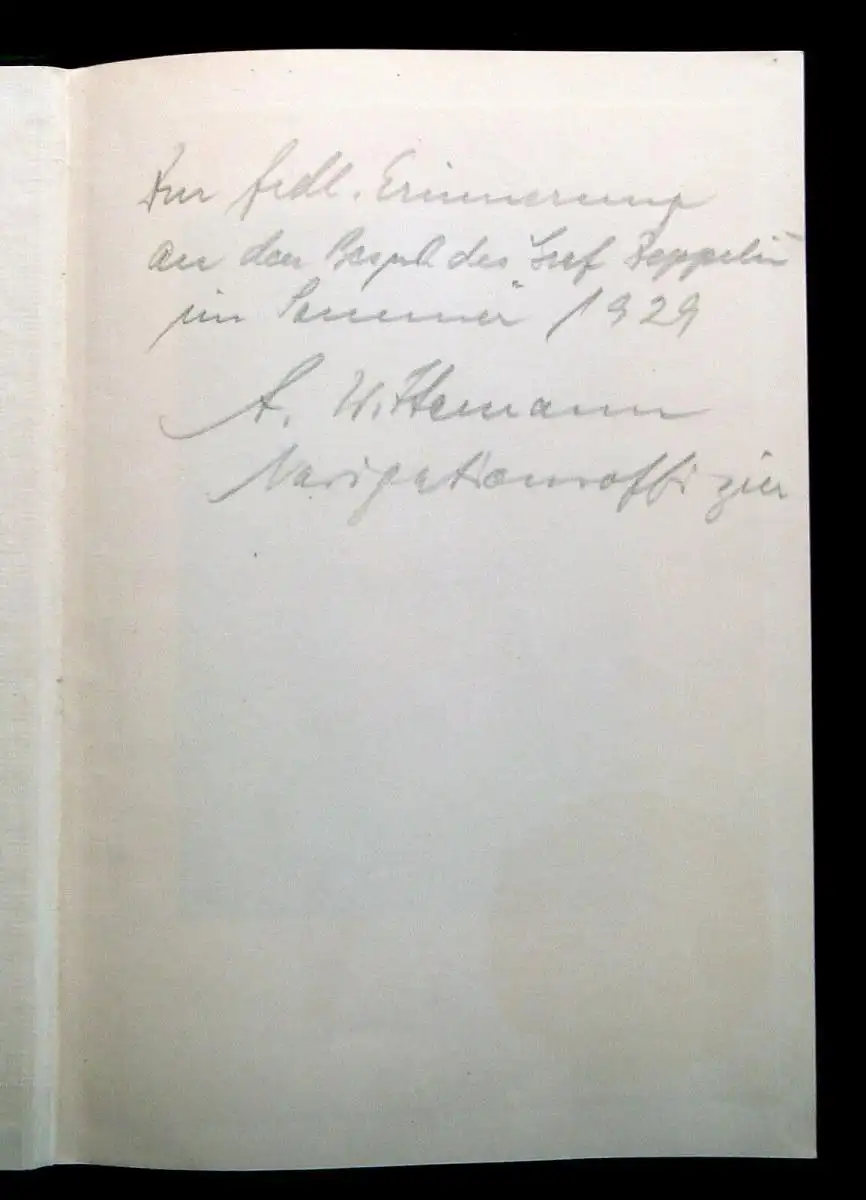 Zur frdl. Erinnerung
an den Besuch des "Graf Zeppelin"
im Sommer 1929
A. Wittemann
Navigationsoffizier